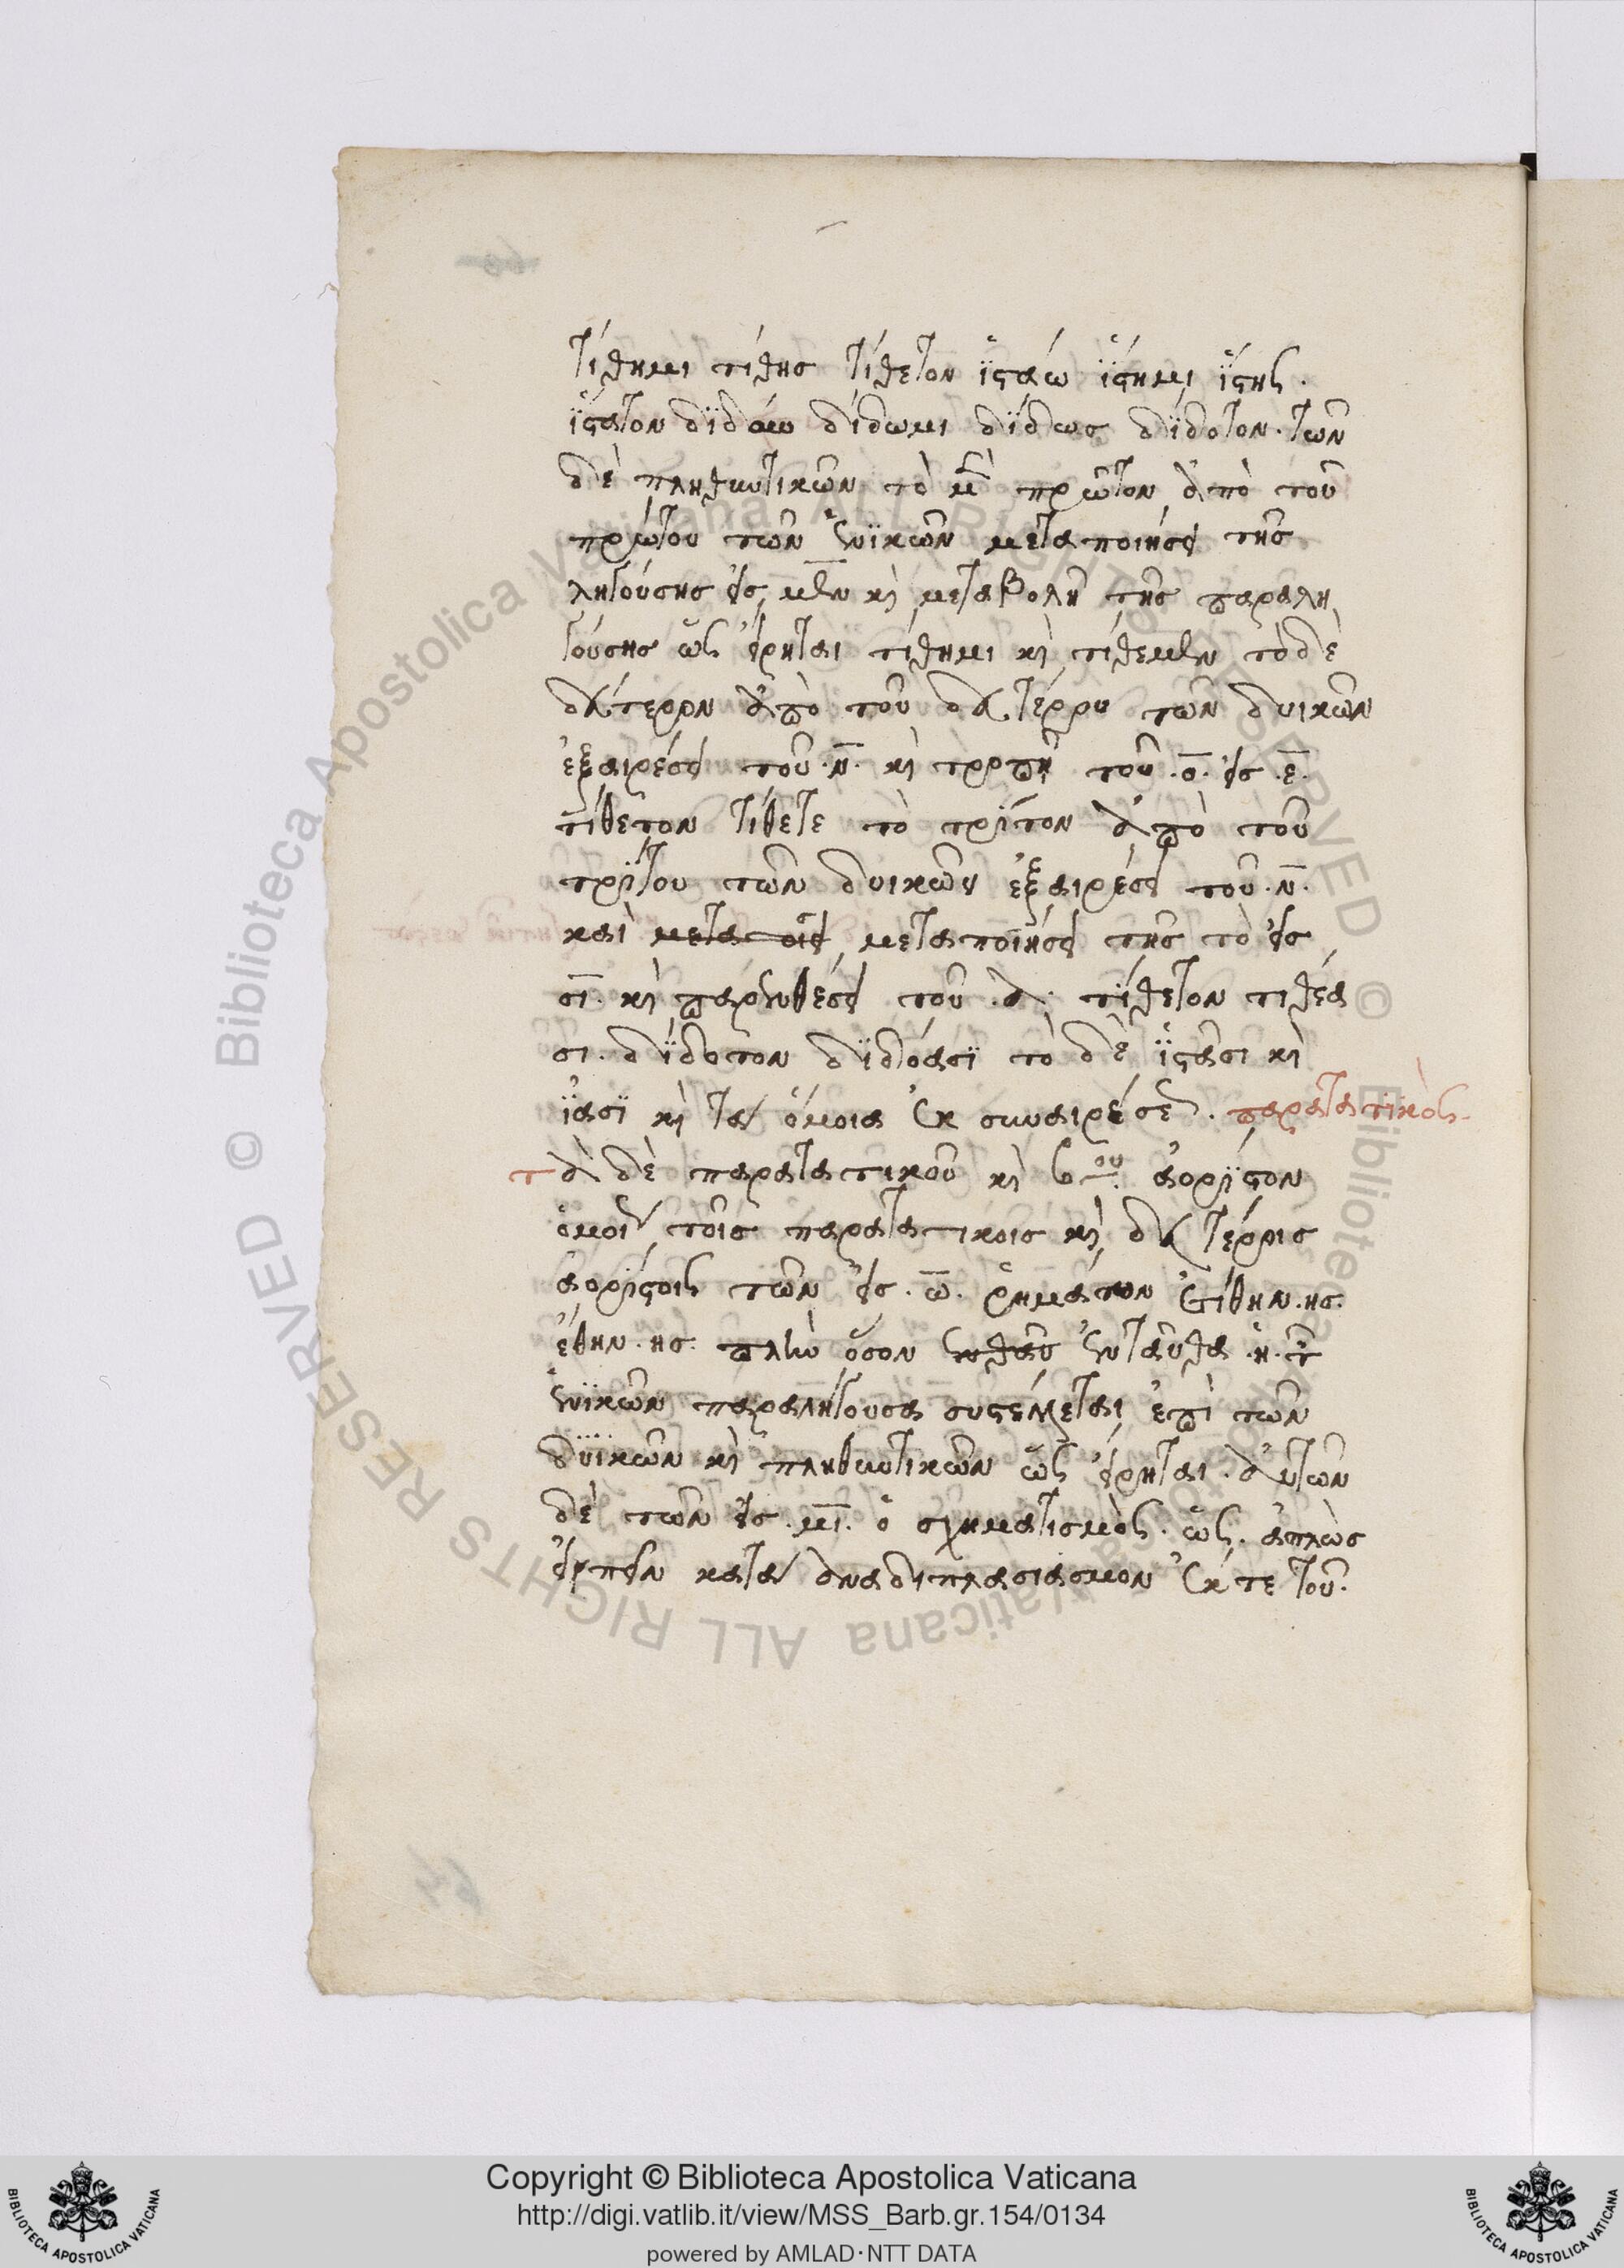 τίθημι τίθης τίθετον ἱϊστάω ἵϊστημι ἵϊστης.
ἵϊστατον δϊδόω δίδωμι δϊδως δϊδοτον. των
δὲ πληθυντικῶν τὸ μὲν πρῶτον ἀπὸ τοῦ
πρώτου τῶν ἑνϊκῶν μεταποιήσει τῆς
ληγούσης εἰς μεν καὶ μεταβολῆ τῆς παραλη
γούσης ὡς εἴρηται τίθημι καὶ τίθεμεν τὸ δὲ
δεύτερον ἀπὸ τοῦ δευτέρου τῶν δυικῶν
ἐξαιρέσει τοῦ .ν. καὶ τροπῆ τοῦ .ο. εἰς .ε.
τίθετον τίθετε τὸ τρίτον ἀπὸ τοῦ
τρίτου τῶν δυικῶν ἐξαιρέσει τοῦ .ν.
καὶ μεταποιεῖ μεταποιήσει τῆς τὸ εἰς
σι. καὶ παρενθέσει τοῦ .α. τίθετον τιθέα
σι. δϊδοτον δϊδόασϊ τὸ δὲ ἱϊστᾶσι καὶ
ἴασϊ καὶ τὰ ὅμοια ἐκ συναιρέσεως. παρατατικὸς.
τὰ δὲ παρατατικοῦ καὶ βου. ἀορϊστον
ὅμοια τοῖς παρατατικοῖς καὶ δευτέροις
ἀορίστοις τῶν εἰς .ω. ῥημάτων ἐτίθην. ης.
ἔθην. ης. πλὴν ὅσον ἐνταῦ ἐνταῦθα .ἡ. τῶν
ἑνϊκῶν παραλήγουσα συστέλλεται ἐπὶ τῶν
δυϊκῶν καὶ πληθυντικῶν ὡς εἴρηται. αὐτῶν
δὲ τῶν εἰς .μι. ὁ σχηματισμὸς. ὡς. ἁπλῶς
εἰπεῖν κατὰ ἀναδιπλασιασμον ἐκ τε τοῦ.
Copyright © Biblioteca Apostolica Vaticana
http://digi.vatlib.it/view/MSS_Barb.gr.154/0134
powered by AMLAD·NTT DATA